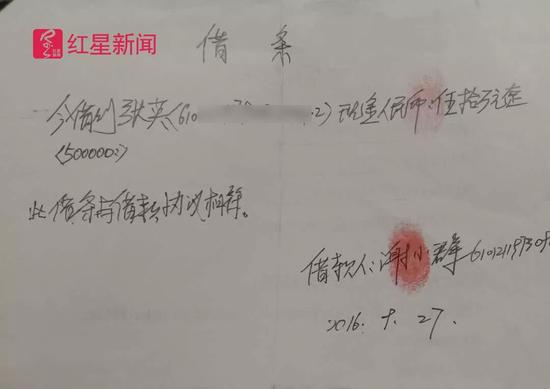 红星新闻
借条
今借到张英(610 2)现金人民币:伍拾万元整
(500000:)
此借条与借款协议相符。
借款人:谢小群 6101211973
2016. 9. 27.